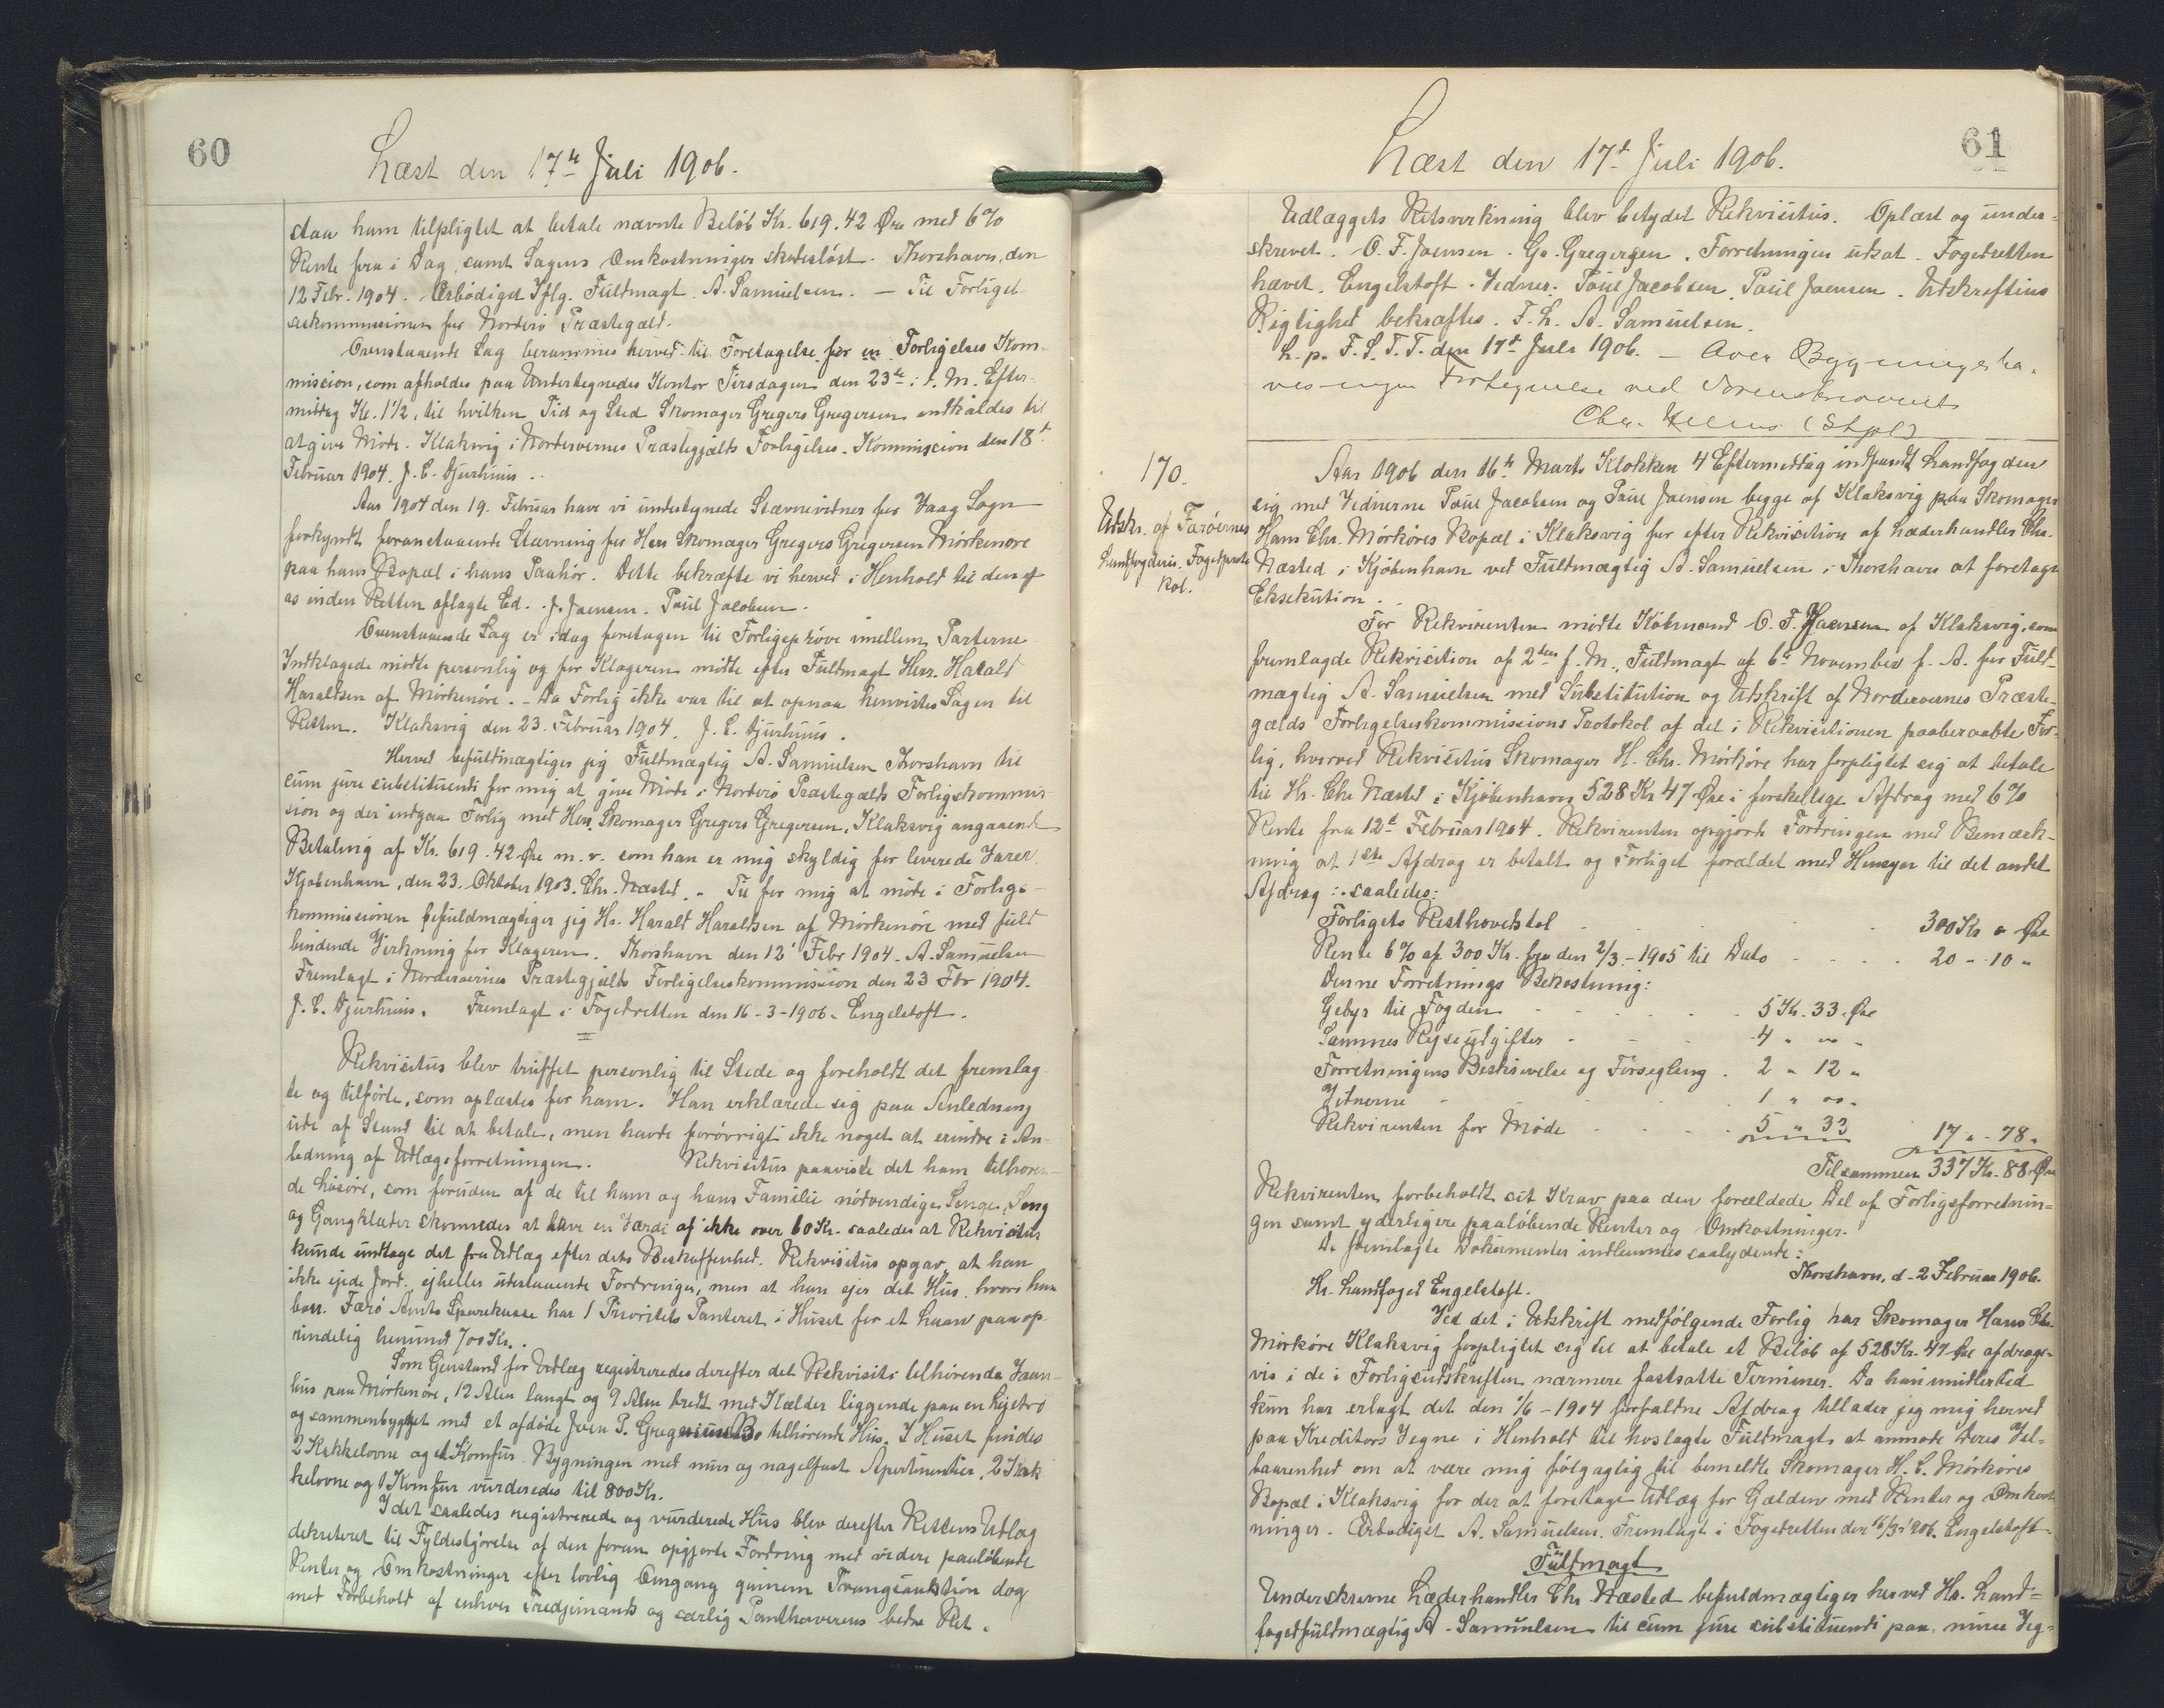 60
Læst den 17de Juli 1906.
staa ham tilpligtet at betale nævnte Beløb Kr. 619.42 Øre med 6%
Rente fra i Dag, samt Sagens Omkostninger skadesløst. Thorshavn, den
12 Febr. 1904. Ærbødigst Iflg. Fuldmagt. A. Samuelsen. — Til Forligel
seskommissionen for Norderø Præstegæld.
Ovenstaaende Sag berammes herved til Foretagelse for en Forligelses Kom-
mission, som afholdes paa Undertegnedes Kontor Tirsdagen den 23de d. M. Efter-
middag Kl. 1½, til hvilken Tid og Sted Skomager Gregers Gregersen indkaldes til
at give Møde. Klaksvig i Norderøernes Præstegjælds Forligelses-Kommission den 18de
Februar 1904. J. C. Djurhuus.
Aar 1904 den 19. Februar have vi undertegnede Stævnevidner for Vaag Sogn
forkyndt foranstaaende Stævning for Herr Skomager Gregers Gregersen Mörkenøre
paa hans Bopæl i hans Paahør. Dette bekræfte vi herved i Henhold til den af
os inden Retten aflagte Ed. J. Joensen. Poul Jacobsen.
Ovenstaaende Sag er idag foretagen til Forligsprøve imellem Parterne
Indklagede mødte personlig og for Klageren mødte efter Fuldmagt Herr. Harald
Haraldsen af Mörkenøre. - Da Forlig ikke var til at opnaa henvistes Sagen til
Retten. Klaksvig den 23. Februar 1904. J. C. Djurhuus.
Herved befuldmægtiger jeg Fuldmægtig A. Samuelsen Thorshavn til
cum jure substituendi for mig at give Møde i Norderø Præstegælds Forligskommis-
sion og der indgaa Forlig med Herr. Skomager Gregers Gregersen, Klaksvig angaaende
Betaling af Kr. 619.42 Øre m. v. som han er mig skyldig for leverede Varer.
Kjøbenhavn, den 23. Oktober 1903. Chr. Næsted. - Til for mig at møde i Forligs-
kommissionen befuldmægtiger jeg Hr. Harald Haraldsen af Mörkenøre med fuld
bindende Virkning for Klageren. Thorshavn den 12' Febr 1904. A. Samuelsen
Fremlagt i Norderøernes Præstegjælds Forligelseskommission den 23 Fbr 1904.
J. C. Djurhuus. Fremlagt i Fogedretten den 16-3-1906. Engelstoft.
Rekvisitus blev truffet personlig til Stede og foreholdt det fremlag
te og tilførte, som oplæstes for ham. Han erklærede sig paa Anledning
ude af Stand til at betale, men havde forøvrigt ikke noget at erindre i An-
ledning af Udlægsforretningen. Rekvisitus paaviste det ham tilhøren-
de Løsøre, som foruden af de til ham og hans Familie nödvendige Senge, Seng
og Gangklæder skønnedes at have en Værdi af ikke over 60 Kr. saaledes at Rekvisitus
kunde undtage det fra Udlæg efter dets Beskaffenhed. Rekvisitus opgav, at han
ikke ejede Jord, ejheller udestaaende Fordringer, men at han ejer det Hus, hvori han
bor. Færø Amts Sparekasse har 1 Prioritets Panteret i Huset for et Laan paa op-
rindelig henimod 700 Kr.
Som Genstand for Udlæg registreredes derefter det Rekvisiti tilhørende Vaan-
hus paa Mörkenøre, 12 Alen langt og 9 Alen bredt med Kælder liggende paa en Lejetro
og sammenbygget med et afdøde Joen P. Gregersens Bo tilhørende Hus. I Huset findes
2 Kakkelovne og et Komfur. Bygningen med mur og nagelfast Apertinentier, 2 Kak-
kelovne og 1 Komfur vurderedes til 800 Kr.
I det saaledes registrerede og vurderede Hus blev derefter Rettens Udlæg
dekreteret til Fyldestgjørelse af den foran opgjorte Fordring med videre paaløbende
Renter og Omkostninger efter lovlig Omgang gennem Tvangsauktion dog
med Forbehold af enhver Tredjemands og særlig Panthaverens bedre Ret.
61
Læst den 17de Juli 1906.
Udlæggets Retsvirkning blev betydet Rekvisitus. Oplæst og under-
skrevet. O. F. Joensen. Gr. Gregersen. Forretningen udsat. Fogedretten
hævet. Engelstoft. Vidner: Poul Jacobsen, Poul Joensen. Udskriftens
Rigtighed bekræftes. F. L. A. Samuelsen.
L. p. F. S. T. T. den 17de Juli 1906. — Over Bygninger ha-
ves ingen Fortegnelse ved Sorenskriveriet
(Stpl)
170.
Udskr. af Færøernes
Landfogderis Fogedproto
kol.
Aar 1906 den 16de Marts Klokken 4 Eftermiddag indfandt Landfogden
sig med Vidnerne Poul Jacobsen og Poul Joensen begge af Klaksvig paa Skomager
Hans Chr. Mörköres Bopæl i Klaksvig for efter Rekvisition af Læderhandler Chr.
Næsted i Kjöbenhavn ved Fuldmægtig A. Samuelsen i Thorshavn at foretage
Eksekution.
For Rekvirenten mödte Köbmand O. F. Joensen af Klaksvig, som
fremlagde Rekvisition af 2den f. M., Fuldmagt af 6te November f. A. for Fuld-
mægtig A. Samuelsen med Substitution og Udskrift af Norderøernes Præste-
gælds Forligelseskommissions Protokol af det i Rekvisitionen paaberaabte For-
lig, hvorved Rekvisitus Skomager H. Chr. Mörköre har forpligtet sig at betale
til Hr. Chr. Næsted i Kjöbenhavn 528 Kr 47 Øre i forskellige Afdrag med 6%
Rente fra 12te Februar 1904. Rekvirenten opgjorde Fordringen med Bemærk-
ning at 1ste Afdrag er betalt og Forliget forældet med Hensyn til det andet
Afdrag: saaledes:
Forligets Resthovedstol 300 Kr " Øre
Rente 6% af 300 Kr. fra den 2/3 - 1905 til Dato 20 - 10 "
Denne Forretnings Bekostning:
Gebyr til Fogden 5 Kr. 33 Øre
Sammes Rejseudgifter 4 " " "
Forretningens Beskrivelse og Forsegling 2 " 12 "
Vidnerne 1 " " "
Rekvirenten for Møde 5 " 33 17 " 78 "
Tilsammen 337 Kr. 88 Øre
Rekvirenten forbeholdt sit Krav paa den forældede Del af Forligsforretnin-
gen samt yderligere paaløbende Renter og Omkostninger.
De fremlagte Dokumenter indlemmes saalydende:
Thorshavn, d. 2 Februar 1906.
Hr. Landfoged Engelstoft.
Ved det i Udskrift medfølgende Forlig har Skomager Hans Chr.
Mörköre Klaksvig forpligtet sig til at betale et Beløb af 528 Kr. 47 Øre afdrags-
vis i de i Forligsudskriften nærmere fastsatte Terminer. Da han imidlertid
kun har erlagt det den 1/6 - 1904 forfaldne Afdrag tillader jeg mig herved
paa Kreditors Vegne i Henhold til hoslagte Fuldmagt at anmode Deres Vel-
baarenhed om at være mig følgagtig til bemeldte Skomager H. C. Mörköres
Bopæl i Klaksvig for der at foretage Udlæg for Gælden med Renter og Omkost
ninger. Ærbødigst A. Samuelsen. Fremlagt i Fogedretten den 16/3 1906. Engelstoft.
Fuldmagt
Underskrevne Læderhandler Chr. Næsted befuldmægtiger herved Hr. Land-
fogedfuldmægtig A. Samuelsen til cum jure substituendi paa mine Veg-